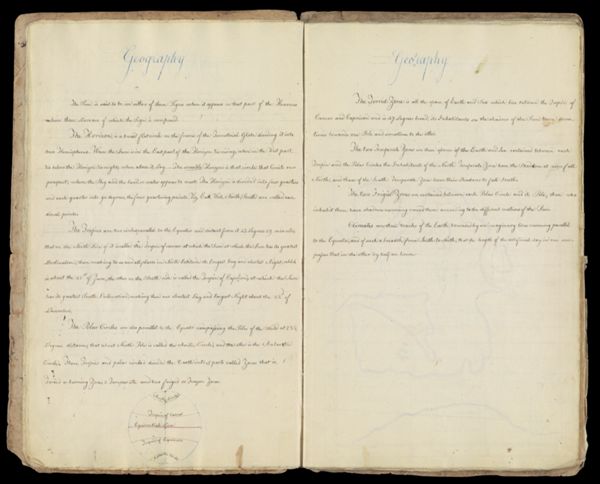 Geography
The Sun is said to be in either of these Signs when it appears in that part of the Heavens
where those Stars are of which the Sign is composed
The Horizon is a broad flat circle in the frame of the Terrestrial Globe dividing it into
two Hemispheres. When the Sun is in the East part of the Horizon 'tis rising, when in the West part
'tis below the Horizon 'tis night, when above it Day. The sensible Horizon is that circle that limits our
prospect, where the Sky and the Land or water appear to meet. The Horizon is divided into four quarters
and each quarter into 90 degrees, the four points viz. East West North South are called car-
dinal points
The Tropics are two circles parallel to the Equator and distant from it 23 degrees 29 min.
that on the North Side of it is called the Tropic of Cancer at which the Sun has its greatest
Declination then making to us and all places in North Latitude the longest Day and shortest Night which
is about the 21st of June, the other on the South side is called the Tropic of Capricorn at which the Sun
has its greatest South Declination making then our shortest Day and longest Night about the 22d of
December
The Polar Circles are also parallel to the Equator encompassing the Poles of the World at 23½
Degrees distance, that about North Pole is called the Arctic Circle, and the other is the Antarctic
Circle. These Tropics and polar circles divide the Earth into 5 parts called Zones that is 1
Torrid or burning Zone 2 Temperate and two frigid or Frozen Zones
Tropic of Cancer
Equinoctial Line
Tropic of Capricorn
Geography
The Torrid Zone is all the space of Earth and Sea which lies between the Tropics of
Cancer and Capricorn and is 47 degrees broad, its Inhabitants see the shadows of the Sun turn some
times towards one Pole and sometimes to the other
The two Temperate Zones are those spaces of the Earth and Sea contained between each
Tropic and the Polar Circles the Inhabitants of the North Temperate Zone have the Shadow at noon full
North, and those of the South Temperate Zone have their Shadows to full South
The two Frigid Zones are contained between each Polar Circle and its Pole, those who
inhabit them have shadows running round them according to the different motions of the Sun
Climates are those tracks of the Earth bounded by an imaginary line running parallel
to the Equator, and of such a breadth from South to North, that the length of the artificial day in one sur-
passes that in the other by half an hour